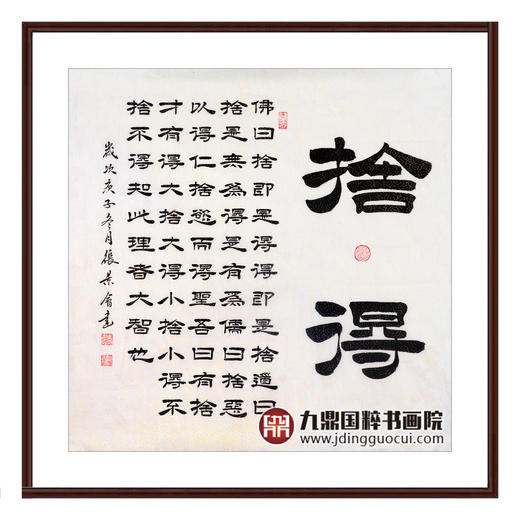 捨得
佛曰捨即是得得即是捨道曰
捨是無為得是有為儒曰捨惡
以得仁捨慾而得聖吾曰有捨
才有得大捨大得小捨小得不
捨不得知此理者大智也
歲次庚子冬月張景會書
九鼎国粹书画院
www.jdingguocui.com